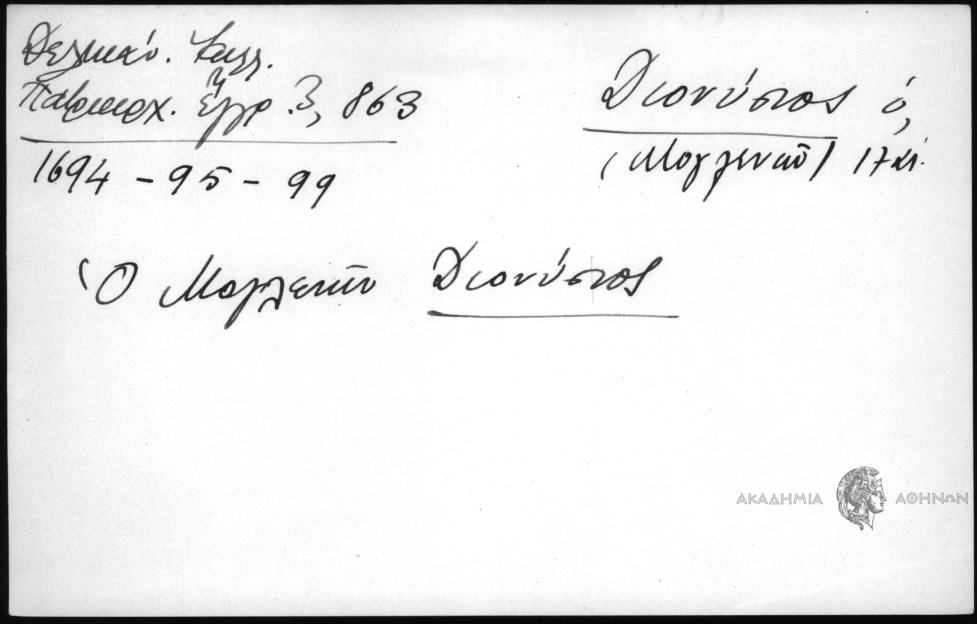 Δελικάν. Καλλ.
Πατριαρχ. Ἔγγρ. 3, 863
1694 - 95 - 99
Διονύσιος ὁ,
(Μογλενῶν) 17 αἰ.
Ὁ Μογλενῶν Διονύσιος
ΑΚΑΔΗΜΙΑ ΑΘΗΝΩΝ